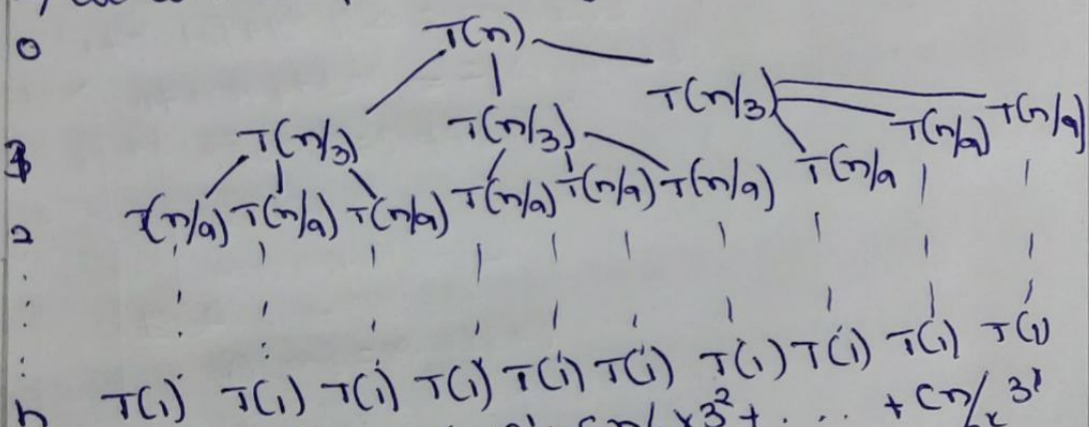 0 T(n)
1 T(n/3) T(n/3) T(n/3)
2 T(n/9) T(n/9) T(n/9) T(n/9) T(n/9) T(n/9) T(n/9 T(n/9) T(n/9)
h T(1) T(1) T(1) T(1) T(1) T(1) T(1) T(1) T(1) T(1)
cn/ x3² + .... + cn/